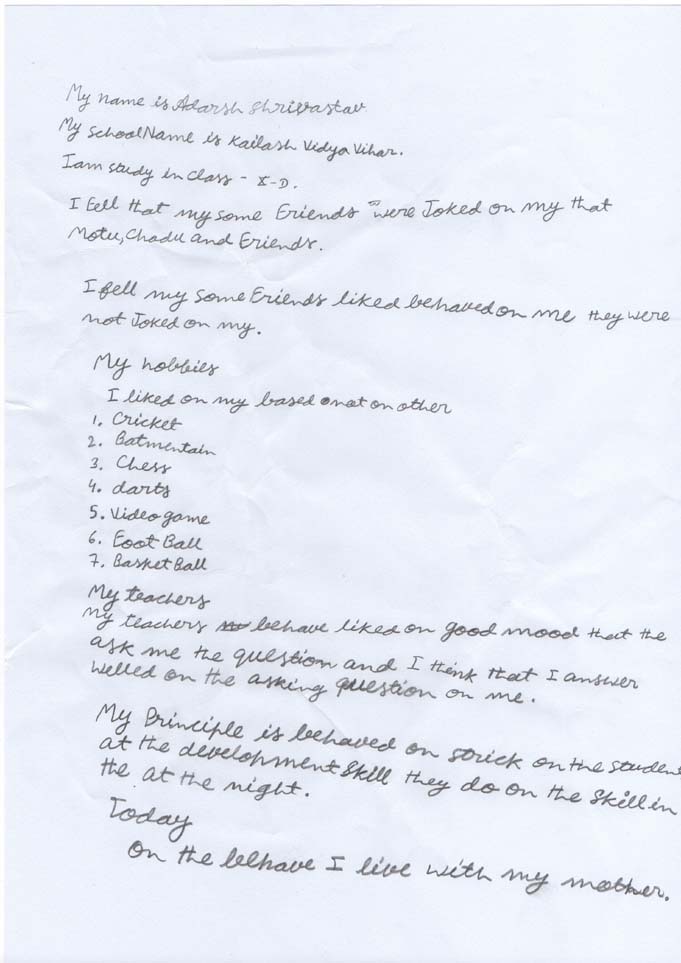 My name is Adarsh Shrivastav
My SchoolName is Kailash Vidya Vihar.
I am study in class - X-D.
I Eell that my some Eriends were Joked on my that
Motu, Chadu and Eriends.
I fell my some Eriends liked behaved on me they were
not Joked on my.
My hobbies
I liked on my based onot on other
1. Cricket
2. Batmentain
3. Chess
4. darts
5. Video game
6. Eoot Ball
7. Basket Ball
My teachers
My teachers behave liked on good mood that the
ask me the question and I think that I answer
welled on the asking question on me.
My Principle is behaved on strick on the student
at the development skill they do on the skill in
the at the night.
Today
On the belhave I live with my mother.